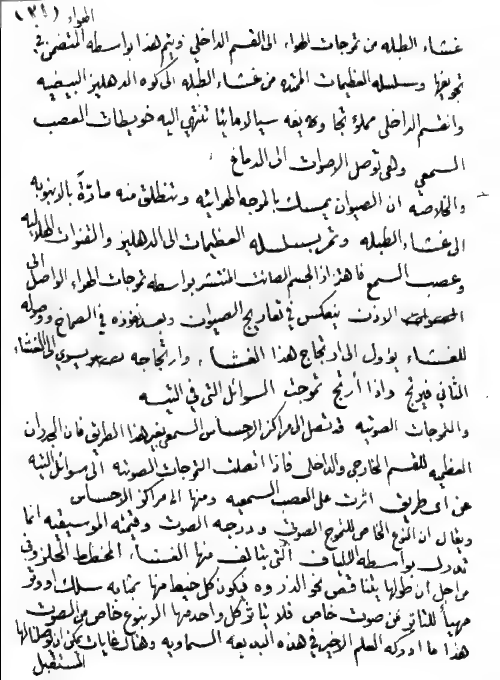 الهواء (٢٤١)
غشاء الطبله من تموجات الهواء الى القسم الداخلي ويتم هذا بواسطه المتضمن في
تجويفها وسلسله العظيمات الممتده من غشاء الطبله الى كوه الدهليز البيضيه
والقسم الداخلي مملوء تجاويفه سيالا مائيا تنتهي اليه خويطات العصب
السمعي وهي توصل الاصوات الى الدماغ
والخلاصه ان الصيوان يمسك بالموجه الهوائيه وتنطلق منه مارّةً بالانبوبه
الى غشاء الطبله وتمر بسلسله العظيمات الى الدهليز والقنوات الهلاليه
وعصب السمع فاهتزاز الجسم الصائت المنتشر بواسطه تموجات الهواء الواصل الى
الاذن ينعكس في تعاريج الصيوان وبعد نفوذه في الصماخ ووصوله
للغشاء يؤول الى ارتجاج هذا الغشاء وارتجاجه يسري الى الغشاء
الثاني فيرتج واذا أرتج تموجت السوائل التي في التيه
والتموجات الصوتيه قد تصل الى مراكز الاحساس السمعي بغير هذا الطريق فان الجدران
العظميه للقسم الخارجي والداخلي فاذا اتصلت التموجات الصوتيه الى سوائل التيه
عن اي طريق اثرت على العصب السمعيه ومنها الى مراكز الاحساس
ويقال ان النوع الخاص للتموج الصوتي ودرجه الصوت وقيمته الموسيقيه انما
تدرك بواسطه اللياف التي يتالف منها الغشاء المخطط الحلزوني
من اجل ان طولها يتناقص نحو الذروه فيكون كل خيط منها بمثابه سلك او وتر
مهيأ للتاثر عن صوت خاص فلا يتاثر كل واحد منها الا بنوع خاص من الصوت
هذا ما ادركه العلم الاخير في هذه البديعه السماويه وهناك غايات يمكن ان يوصل اليها
المستقبل